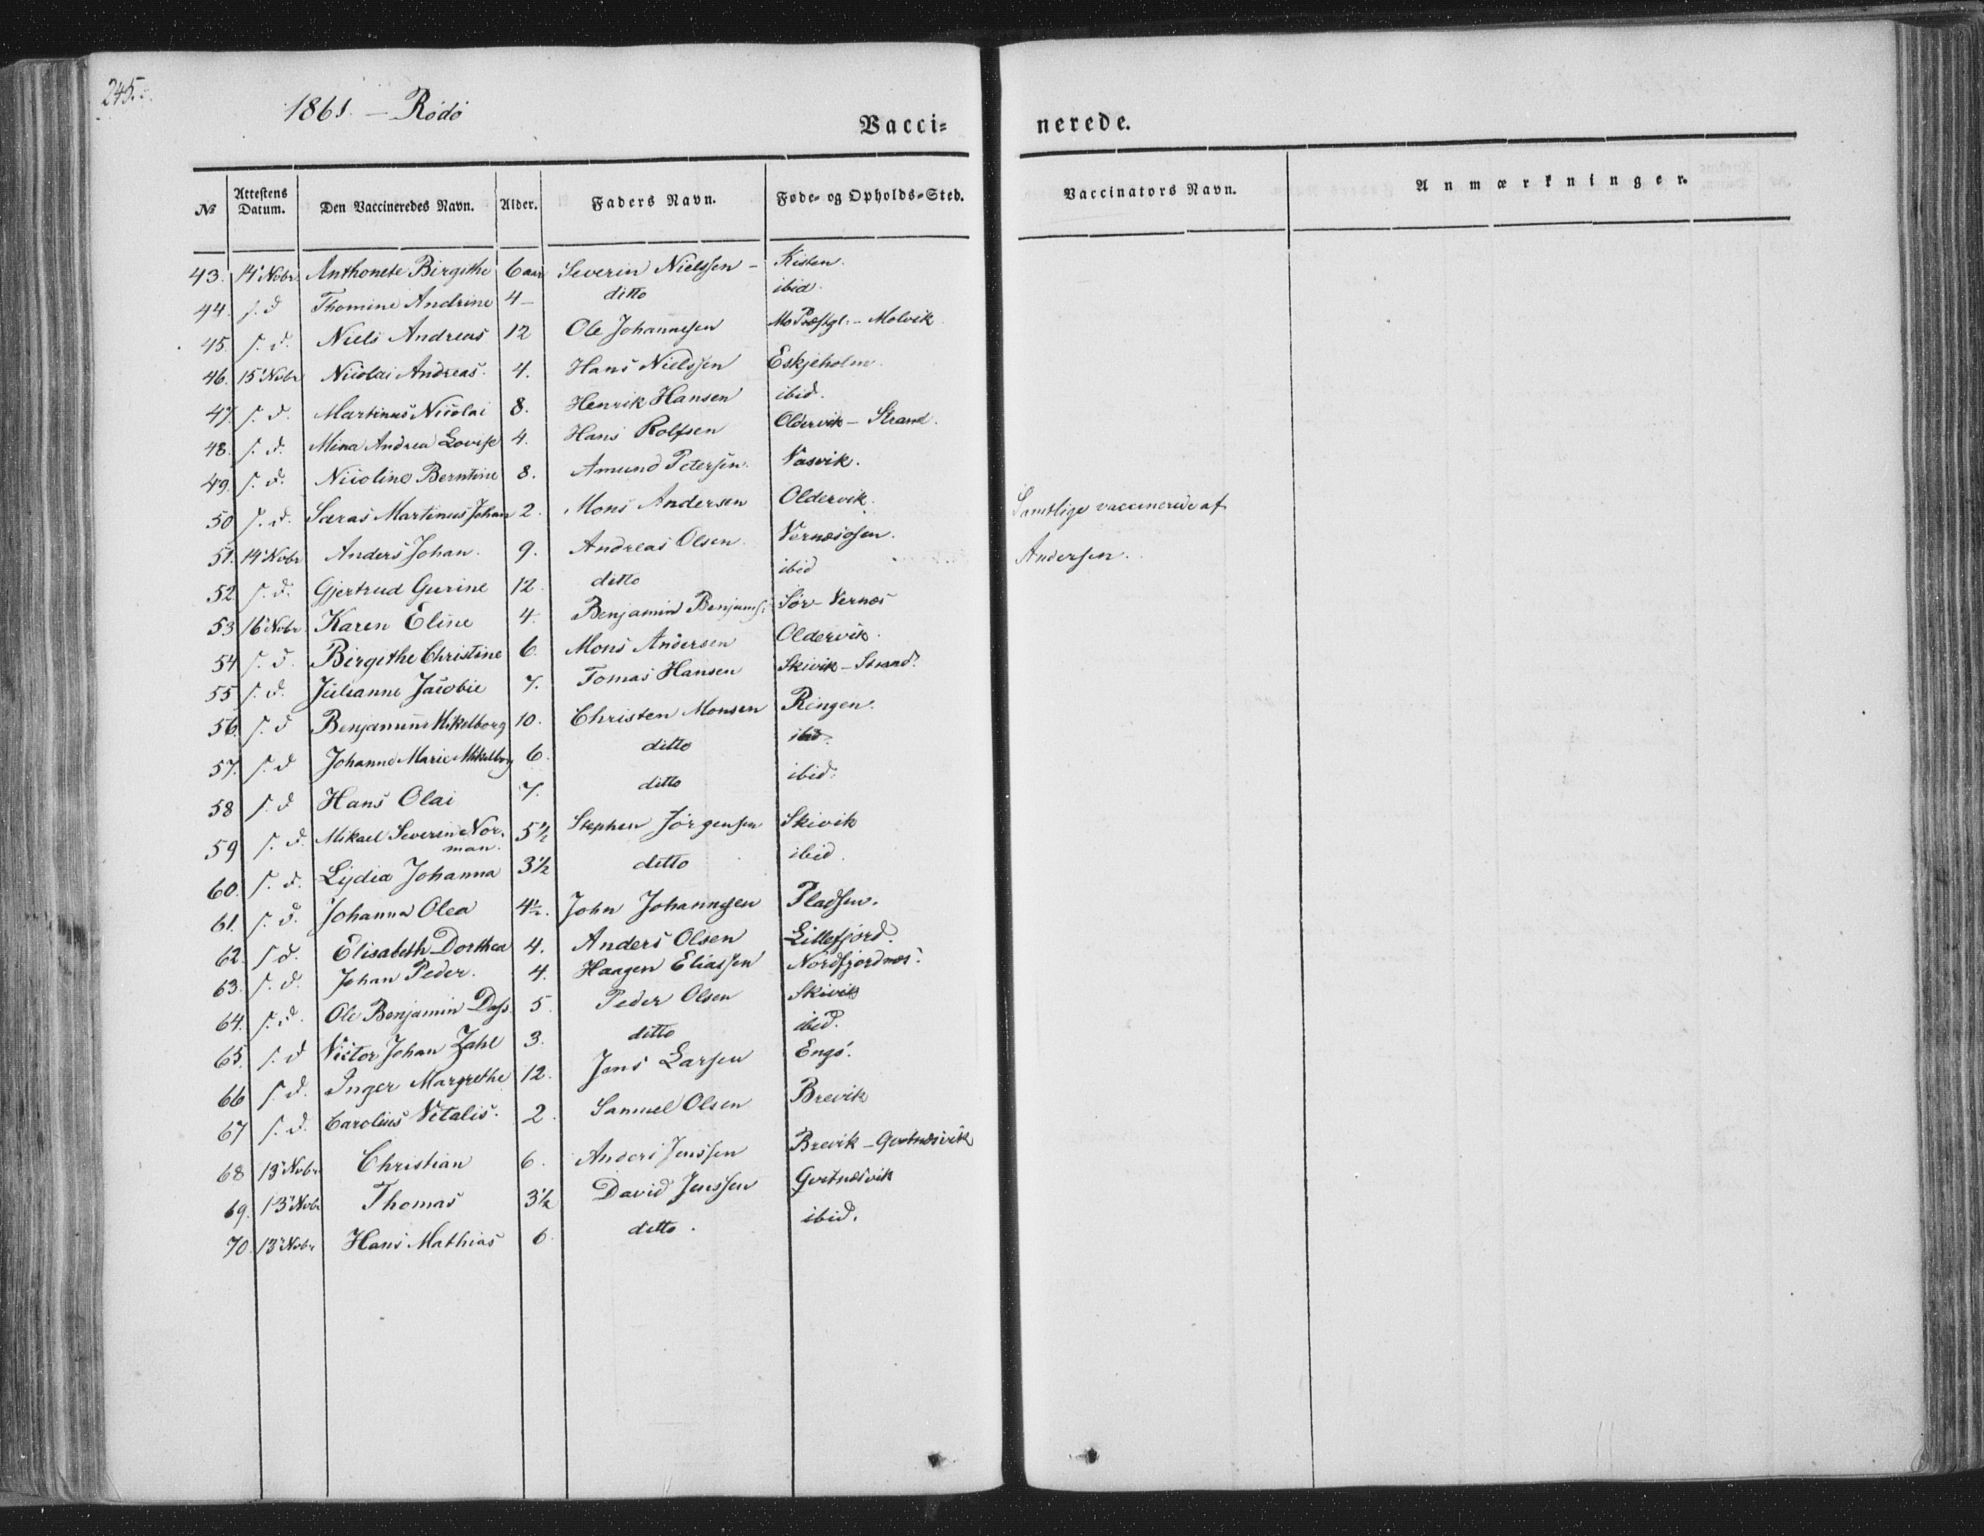 245.
1861. — Rödö
Vacci-
nerede.
No
Attestens Datum.
Den Vaccineredes Navn.
Alder.
Faders Navn.
Føde- og Opholds-Sted.
Vaccinators Navn.
Anmærkninger.
43. 14' Nobr Anthonete Birgithe 6 aar Severin Nielssen – Kisten.
44. s. d Thomine Andrine 4 – ditto ibid.
45. s. d. Niels Andreas 12 Ole Johannesen Mo Præstgl. – Molvik
46. 15' Nobr Nicolai Andreas. 4. Hans Nielssen Eskjeholm.
47. s. d. Martinus Nicolai 8. Henrik Hansen ibid.
48. s. d. Mina Andrea Lovise 4. Hans Rolfsen Oldervik – Strand.
49. s. d. Nicoline Berntine 8. Amund Petersen. Vasvik.
50 s. d. Saras Martinus Johan 2. Mons Andersen Oldervik.
Samtlige vaccinerede af
51. 14' Nobr Anders Johan. 9. Andreas Olsen. Vernæsosen.
Andersen.
52. s. d. Gjertrud Gurine 12 ditto ibid
53 16' Nobr Karen Eline 4. Benjamin Benjams: Sör-Vernæs
54 s. d. Birgithe Christine 6. Mons Andersen Oldervik.
55 s. d. Julianne Jacobie 7. Tomas Hansen Skivik – Strand.
56. s. d Benjamine Mikelborg 10. Christen Monsen Ringen.
57. s. d Johanne Marie Mikelborg 6. ditto ibid.
58 s. d Hans Olai 7. ditto ibid.
59 s. d. Mikael Severin Nor-
man. 5½ Stephen Jörgensen Skivik
60. s. d. Lydia Johanna 3½ ditto ibid.
61. s. d. Johanna Olea 4½. John Johannesen Pladsen.
62. s d. Elisabeth Dorthea 4. Anders Olsen Lillefjord.
63. s. d. Johan Peder. 4. Haagen Eliassen Nordfjordnæs.
64. s. d. Ole Benjamin Dass. 5. Peder Olsen Skivik
65. s. d Victor Johan Zahl 3. ditto ibid.
66 s. d. Inger Margrethe 12. Jens Larsen Engö.
67 s. d. Carolius Vitalis. 2. Samuel Olsen Brevik
68 13' Nobr Christian 6. Anders Jenssen Brevik –
69. 13' Nobr Thomas 3½ David Jenssen
70. 13' Nobr Hans Mathias 6. ditto. ibid.